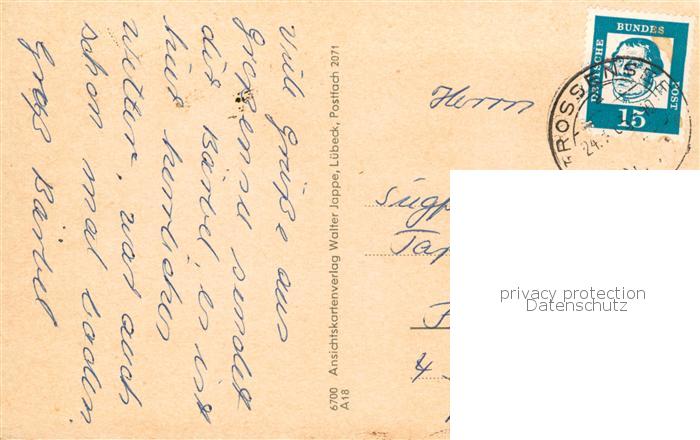 viele Grüße aus
Großensee sendet
dir Bärbel, es ist
hier herrliches
Wetter, war auch
schon mal baden.
Gruß Bärbel
6700 Ansichtskartenverlag Walter Jappe, Lübeck, Postfach 2071
A18
Herrn
DEUTSCHE
BUNDES
POST
15
GROSSENSEE
24.
privacy protection
Datenschutz
4